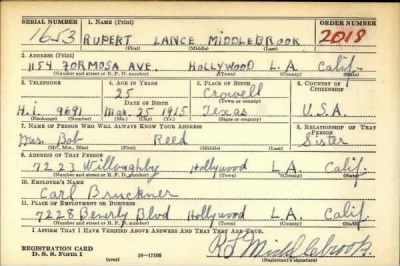 SERIAL NUMBER 1. NAME (Print) ORDER NUMBER
1653 RUPERT LANCE MIDDLEBROOK 2018
(First) (Middle) (Last)
2. ADDRESS (Print)
1154 FORMOSA AVE. HOLLYWOOD L.A. Calif.
(Number and street or R. F. D. number) (Town) (County) (State)
3. TELEPHONE 4. AGE IN YEARS 5. PLACE OF BIRTH 6. COUNTRY OF CITIZENSHIP
25 Crowell
DATE OF BIRTH (Town or county)
H.I. 9691 Mar. 25 1915 Texas U.S.A.
(Exchange) (Number) (Mo.) (Day) (Yr.) (State or country)
7. NAME OF PERSON WHO WILL ALWAYS KNOW YOUR ADDRESS 8. RELATIONSHIP OF THAT PERSON
Mrs. Bob Reed Sister
(Mr., Mrs., Miss) (First) (Middle) (Last)
9. ADDRESS OF THAT PERSON
7223 Willoughby Hollywood L.A. Calif.
(Number and street or R. F. D. number) (Town) (County) (State)
10. EMPLOYER'S NAME
Carl Bruckner
11. PLACE OF EMPLOYMENT OR BUSINESS
7228 Beverly Blvd Hollywood L.A. Calif.
(Number and street or R. F. D. number) (Town) (County) (State)
I AFFIRM THAT I HAVE VERIFIED ABOVE ANSWERS AND THAT THEY ARE TRUE.
REGISTRATION CARD
D. S. S. Form 1 (over) 16—17105 (Registrant's signature)